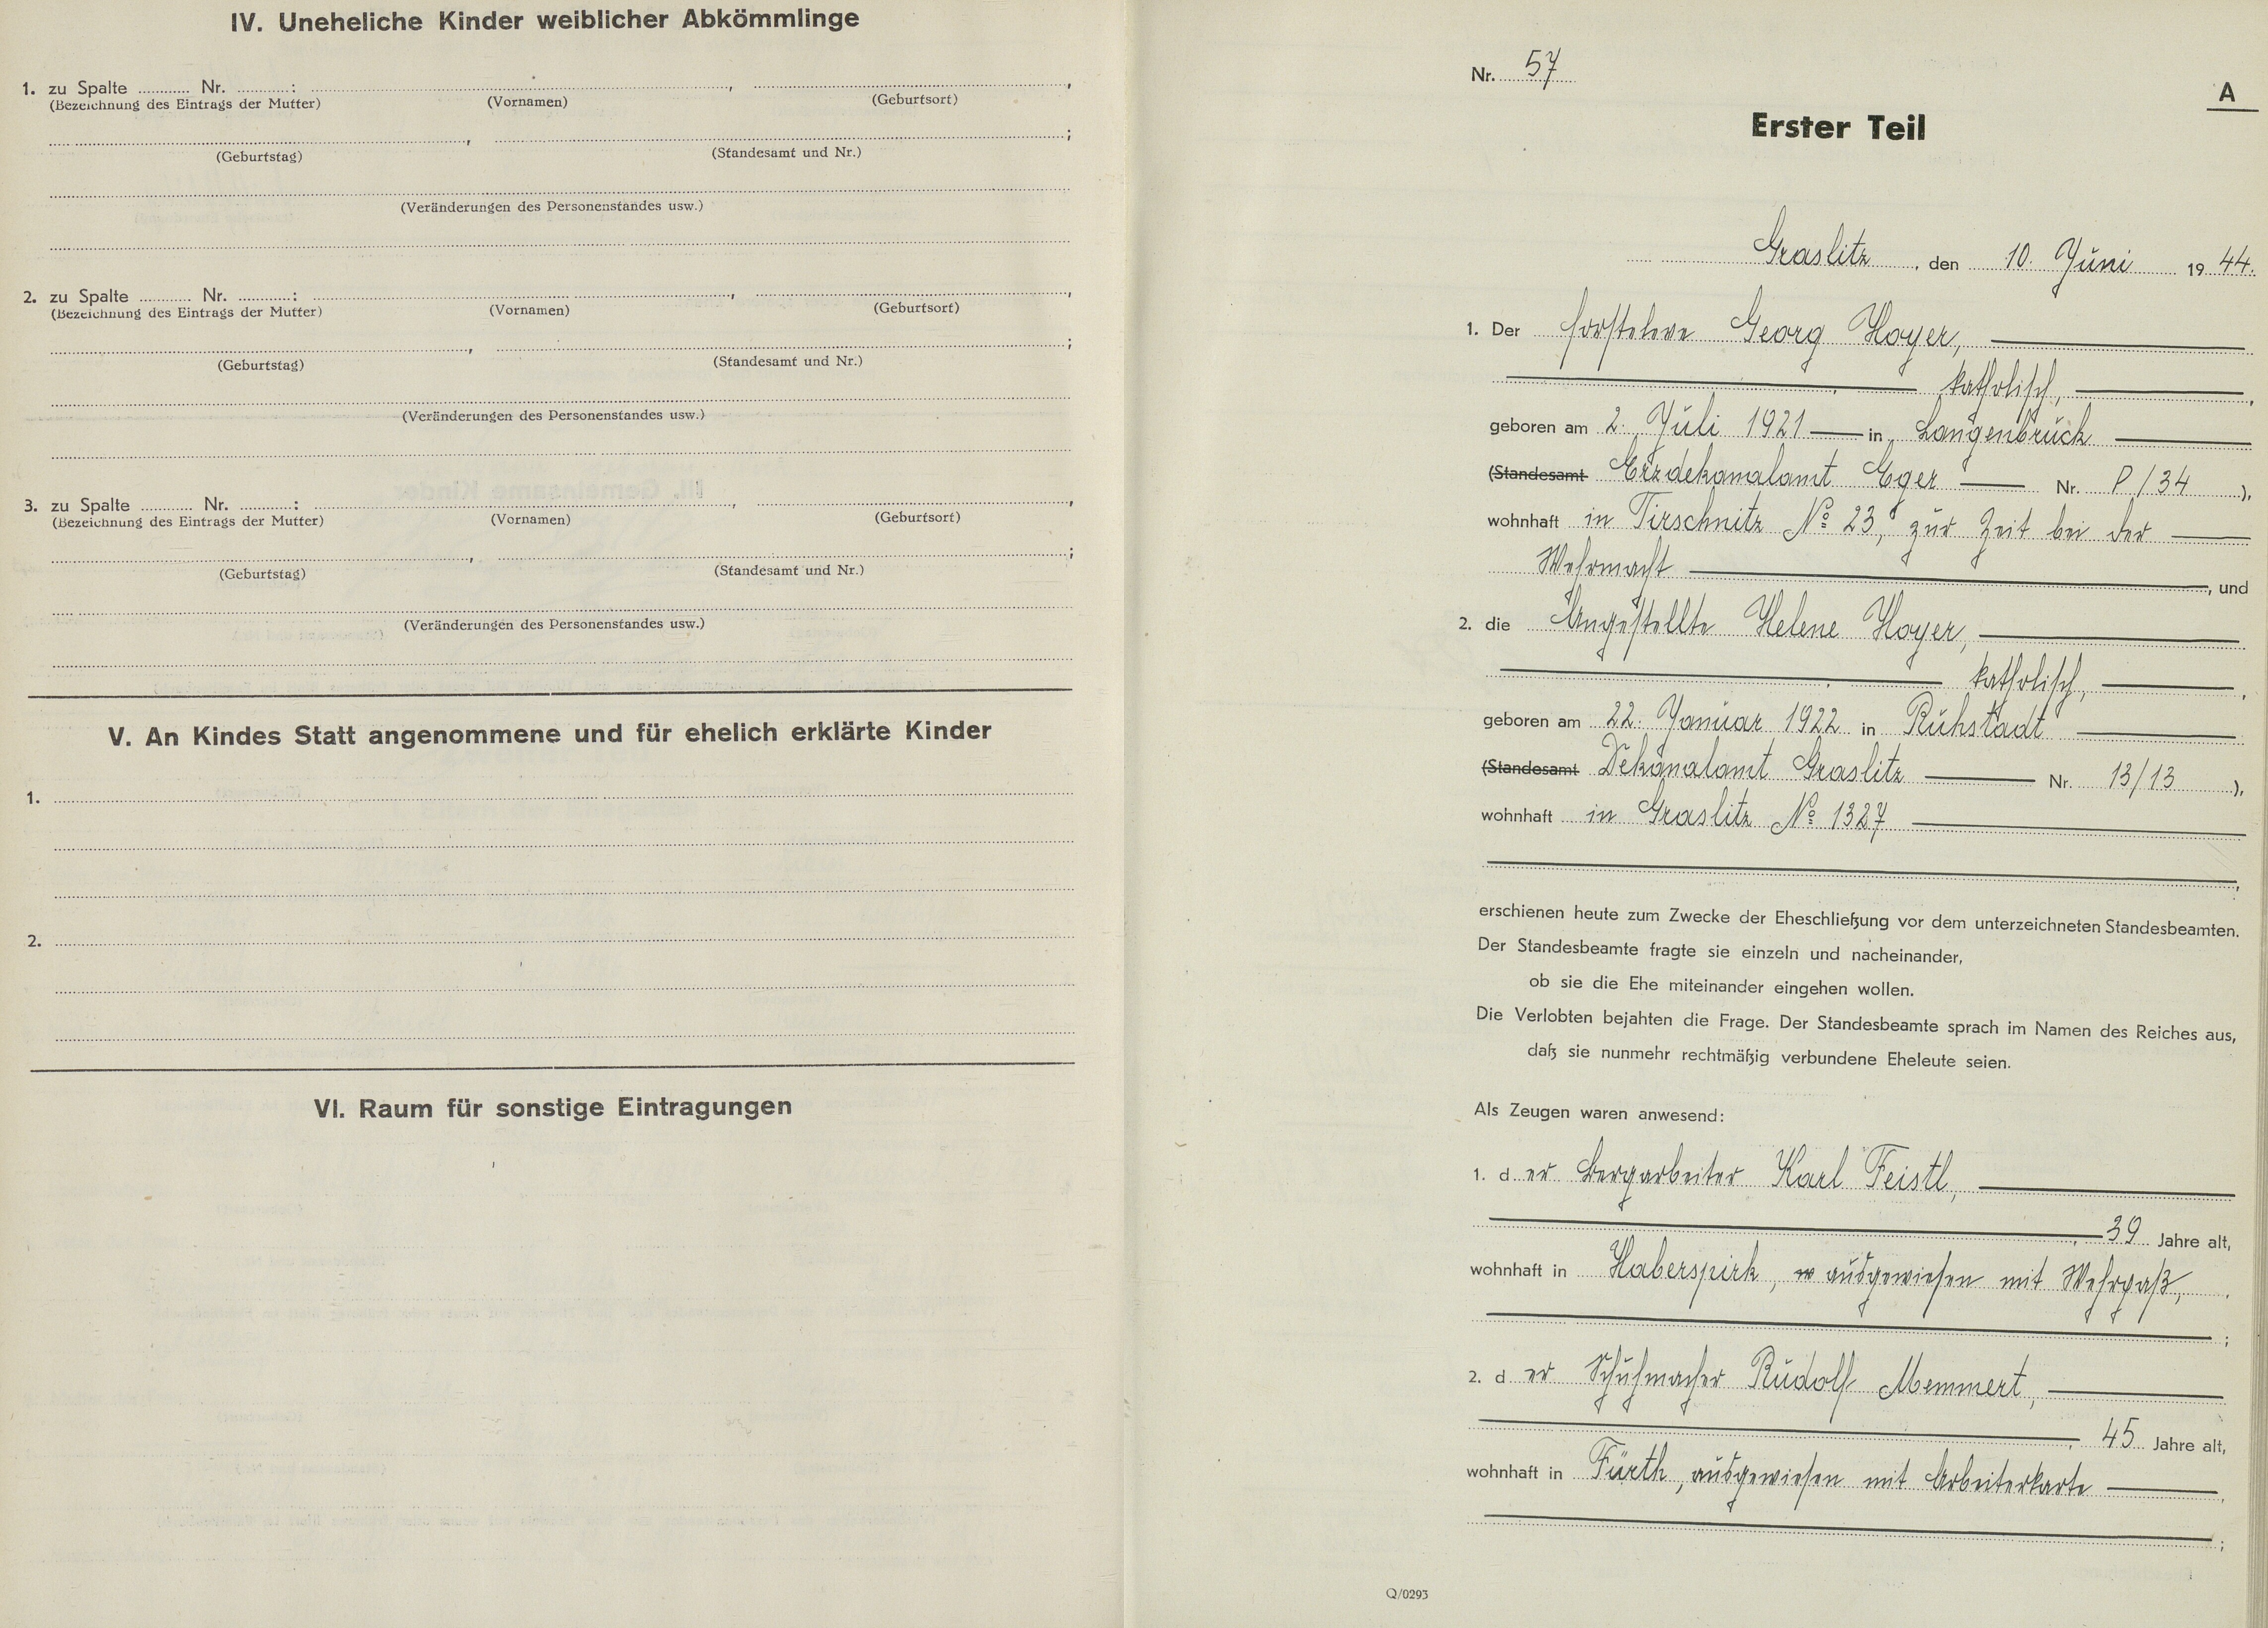 IV. Uneheliche Kinder weiblicher Abkömmlinge
1. zu Spalte .......... Nr. ..........: .........., ..........,
(Bezeichnung des Eintrags der Mutter) (Vornamen) (Geburtsort)
.........., ..........;
(Geburtstag) (Standesamt und Nr.)
(Veränderungen des Personenstandes usw.)
2. zu Spalte .......... Nr. ..........: .........., ..........,
(Bezeichnung des Eintrags der Mutter) (Vornamen) (Geburtsort)
.........., ..........;
(Geburtstag) (Standesamt und Nr.)
(Veränderungen des Personenstandes usw.)
3. zu Spalte .......... Nr. ..........: .........., ..........,
(Bezeichnung des Eintrags der Mutter) (Vornamen) (Geburtsort)
.........., ..........;
(Geburtstag) (Standesamt und Nr.)
(Veränderungen des Personenstandes usw.)
V. An Kindes Statt angenommene und für ehelich erklärte Kinder
1.
2.
VI. Raum für sonstige Eintragungen
Nr. 57
A
Erster Teil
Graslitz, den 10. Juni 1944.
1. Der Forsteleve Georg Hoyer,
katholisch,
geboren am 2. Juli 1921 in Langenbruck
(Standesamt Erzdekanalamt Eger Nr. P/34),
wohnhaft in Tirschnitz No 23, zur Zeit bei der
Wehrmacht, und
2. die Angestellte Helene Hoyer,
katholisch,
geboren am 22. Januar 1922 in Ruhstadt
(Standesamt Dekanalamt Graslitz Nr. 13/13),
wohnhaft in Graslitz No 1327
erschienen heute zum Zwecke der Eheschließung vor dem unterzeichneten Standesbeamten.
Der Standesbeamte fragte sie einzeln und nacheinander,
ob sie die Ehe miteinander eingehen wollen.
Die Verlobten bejahten die Frage. Der Standesbeamte sprach im Namen des Reiches aus,
daß sie nunmehr rechtmäßig verbundene Eheleute seien.
Als Zeugen waren anwesend:
1. der Bergarbeiter Karl Feistl,
39 Jahre alt,
wohnhaft in Haberspirk, ausgewiesen mit Wehrpaß,
2. der Schuhmacher Rudolf Memmert,
45 Jahre alt,
wohnhaft in Fürth, ausgewiesen mit Arbeiterkarte
Q/0293